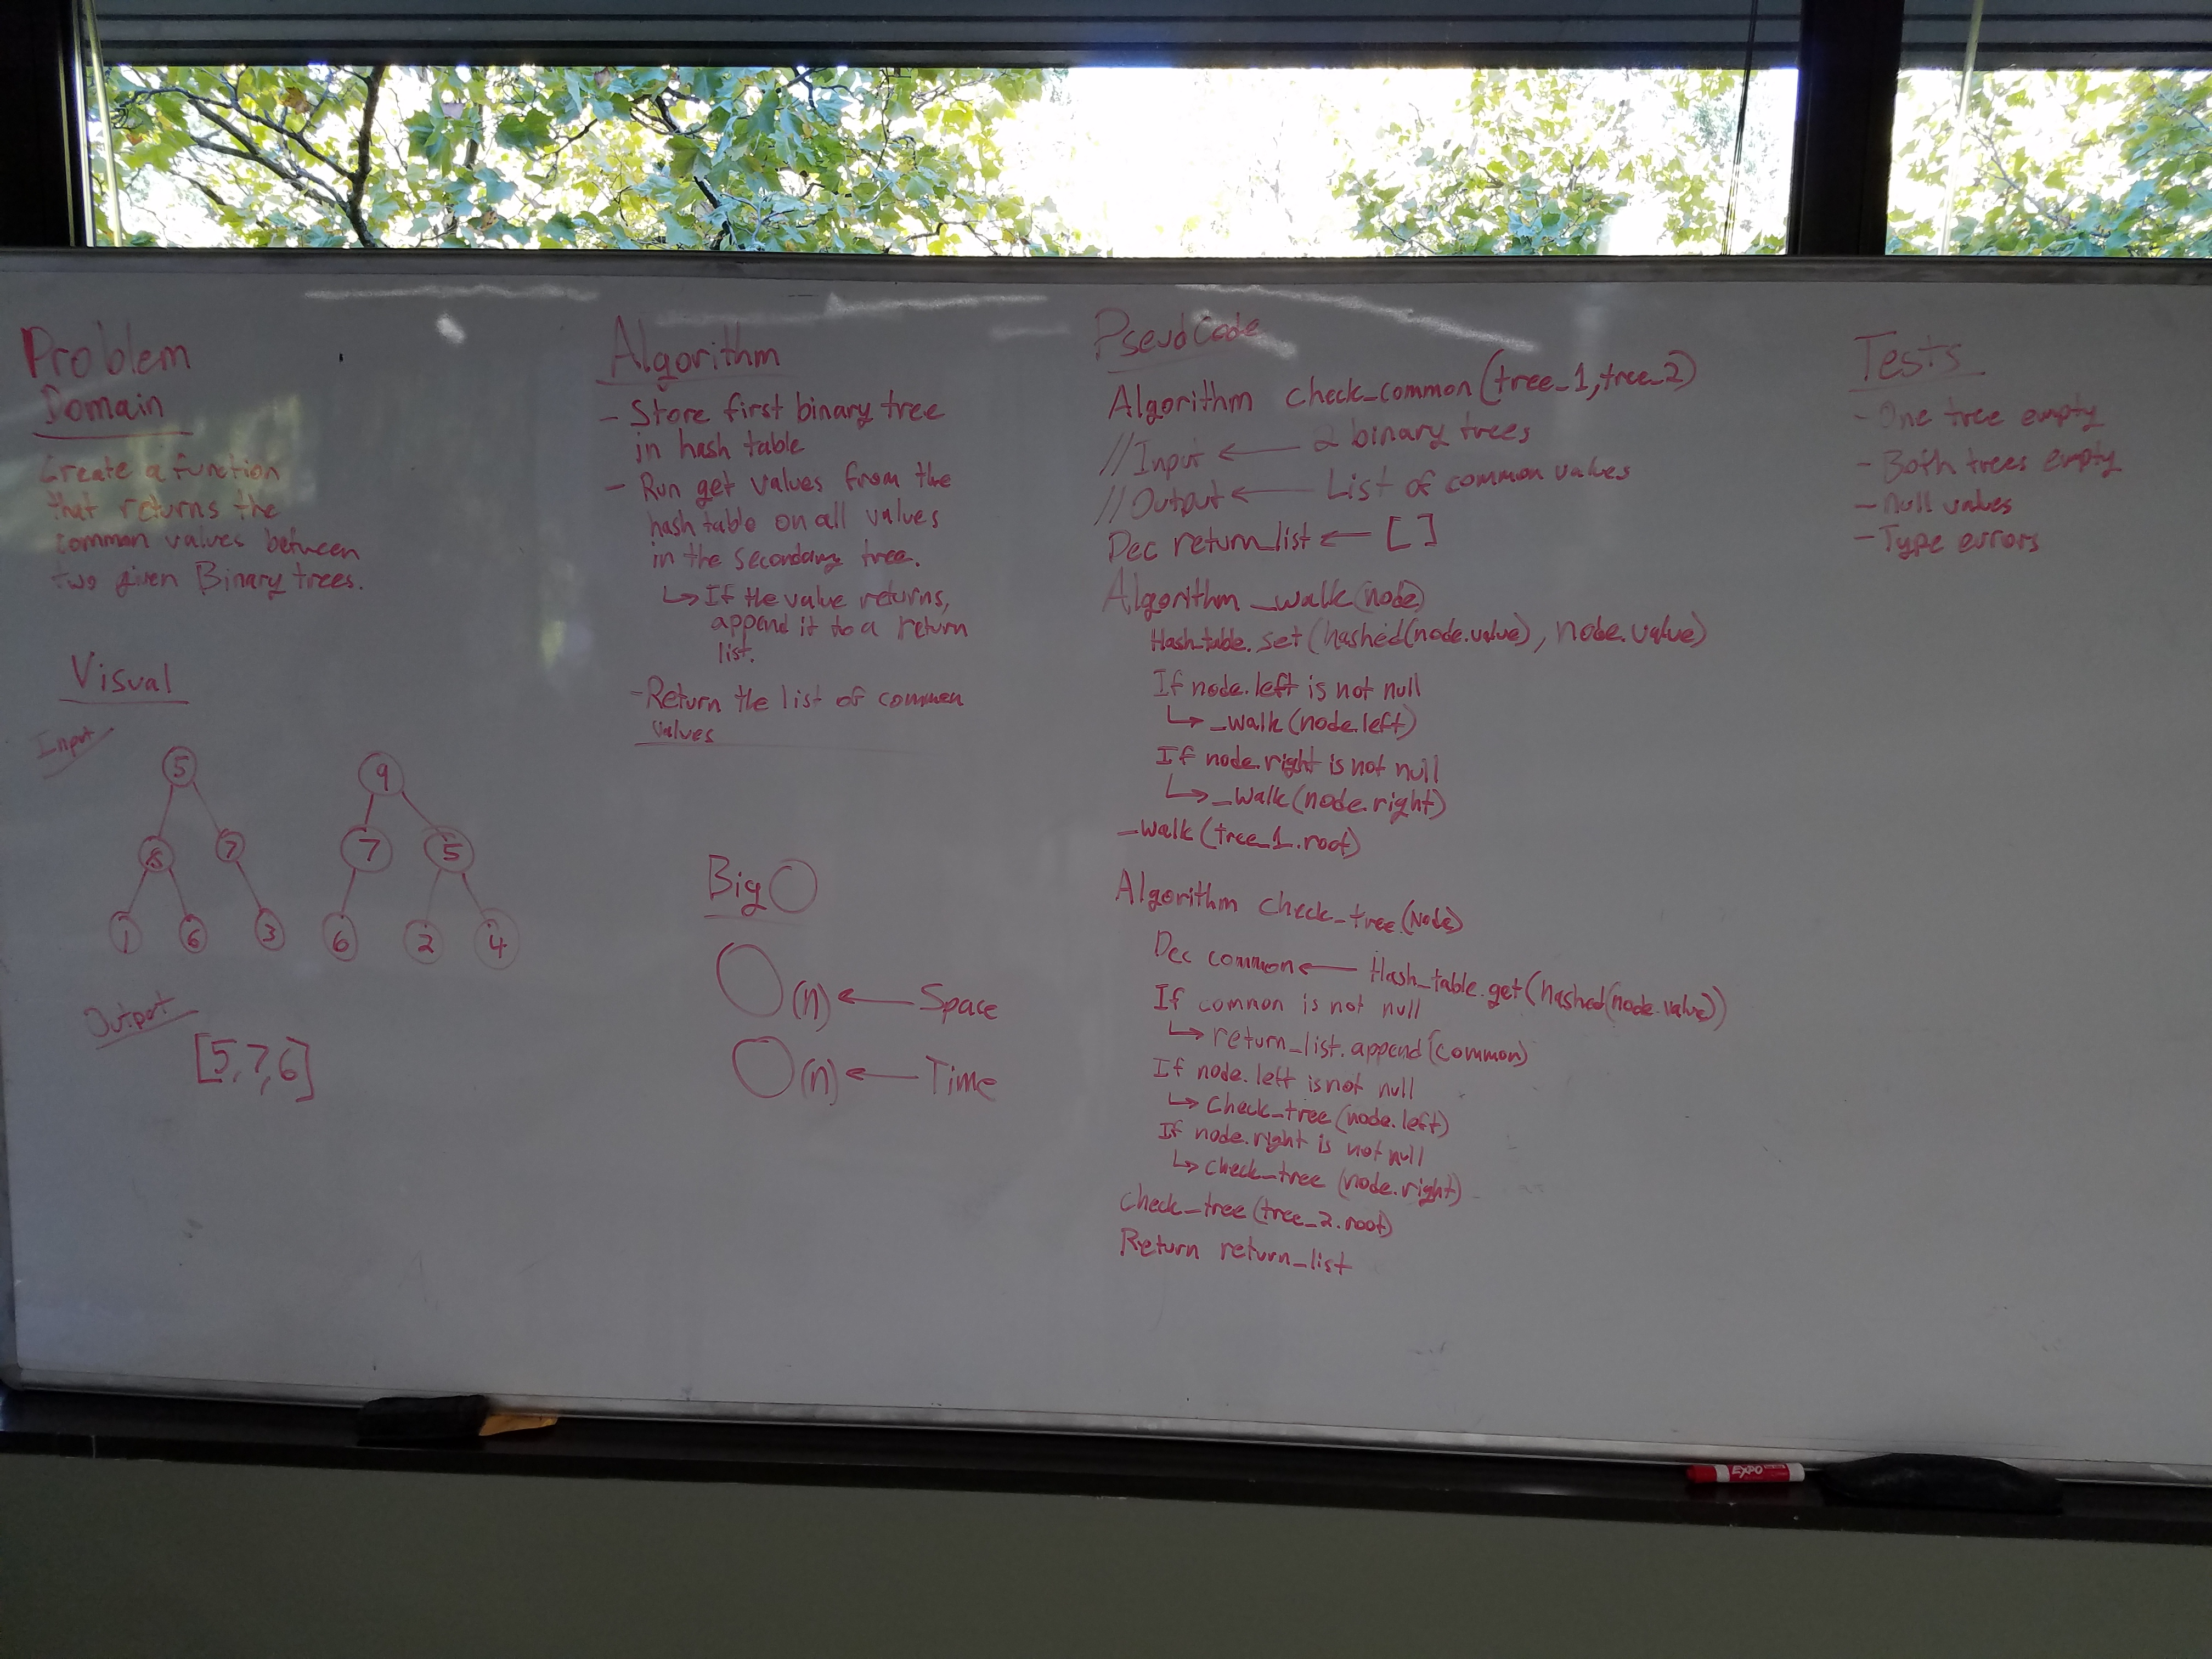 Problem
Domain
Create a function
that returns the
common values between
two given Binary trees.
Visual
Input
5
8 7
1 6 3
9
7 5
6 2 4
Output
[5,7,6]
Algorithm
- Store first binary tree
in hash table
- Run get values from the
hash table on all values
in the secondary tree.
↳ If the value returns,
append it to a return
list.
- Return the list of common
values
Big O
O(n) ← Space
O(n) ← Time
PseudoCode
Algorithm check_common(tree_1,tree_2)
//Input ← 2 binary trees
//Output ← List of common values
Dec return_list ← []
Algorithm _walk(node)
Hash_table.set(hashed(node.value), node.value)
If node.left is not null
↳ _walk(node.left)
If node.right is not null
↳ _walk(node.right)
_walk(tree_1.root)
Algorithm check_tree(Node)
Dec common ← Hash_table.get(hashed(node.value))
If common is not null
↳ return_list.append(common)
If node.left is not null
↳ check_tree(node.left)
If node.right is not null
↳ check_tree (node.right)
check_tree(tree_2.root)
Return return_list
Tests
- One tree empty
- Both trees empty
- Null values
- Type errors
EXPO